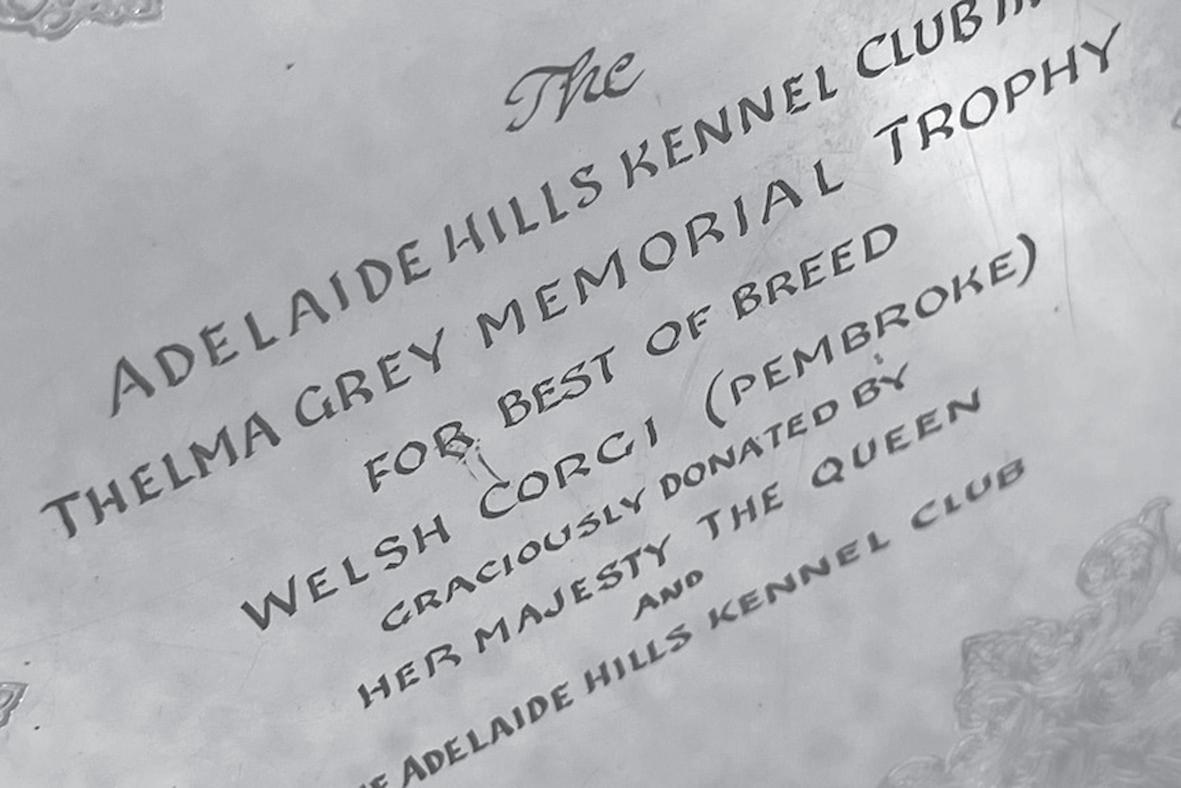 The
ADELAIDE HILLS KENNEL CLUB
THELMA GREY MEMORIAL TROPHY
FOR BEST OF BREED
WELSH CORGI (PEMBROKE)
GRACIOUSLY DONATED BY
HER MAJESTY THE QUEEN
AND
ADELAIDE HILLS KENNEL CLUB